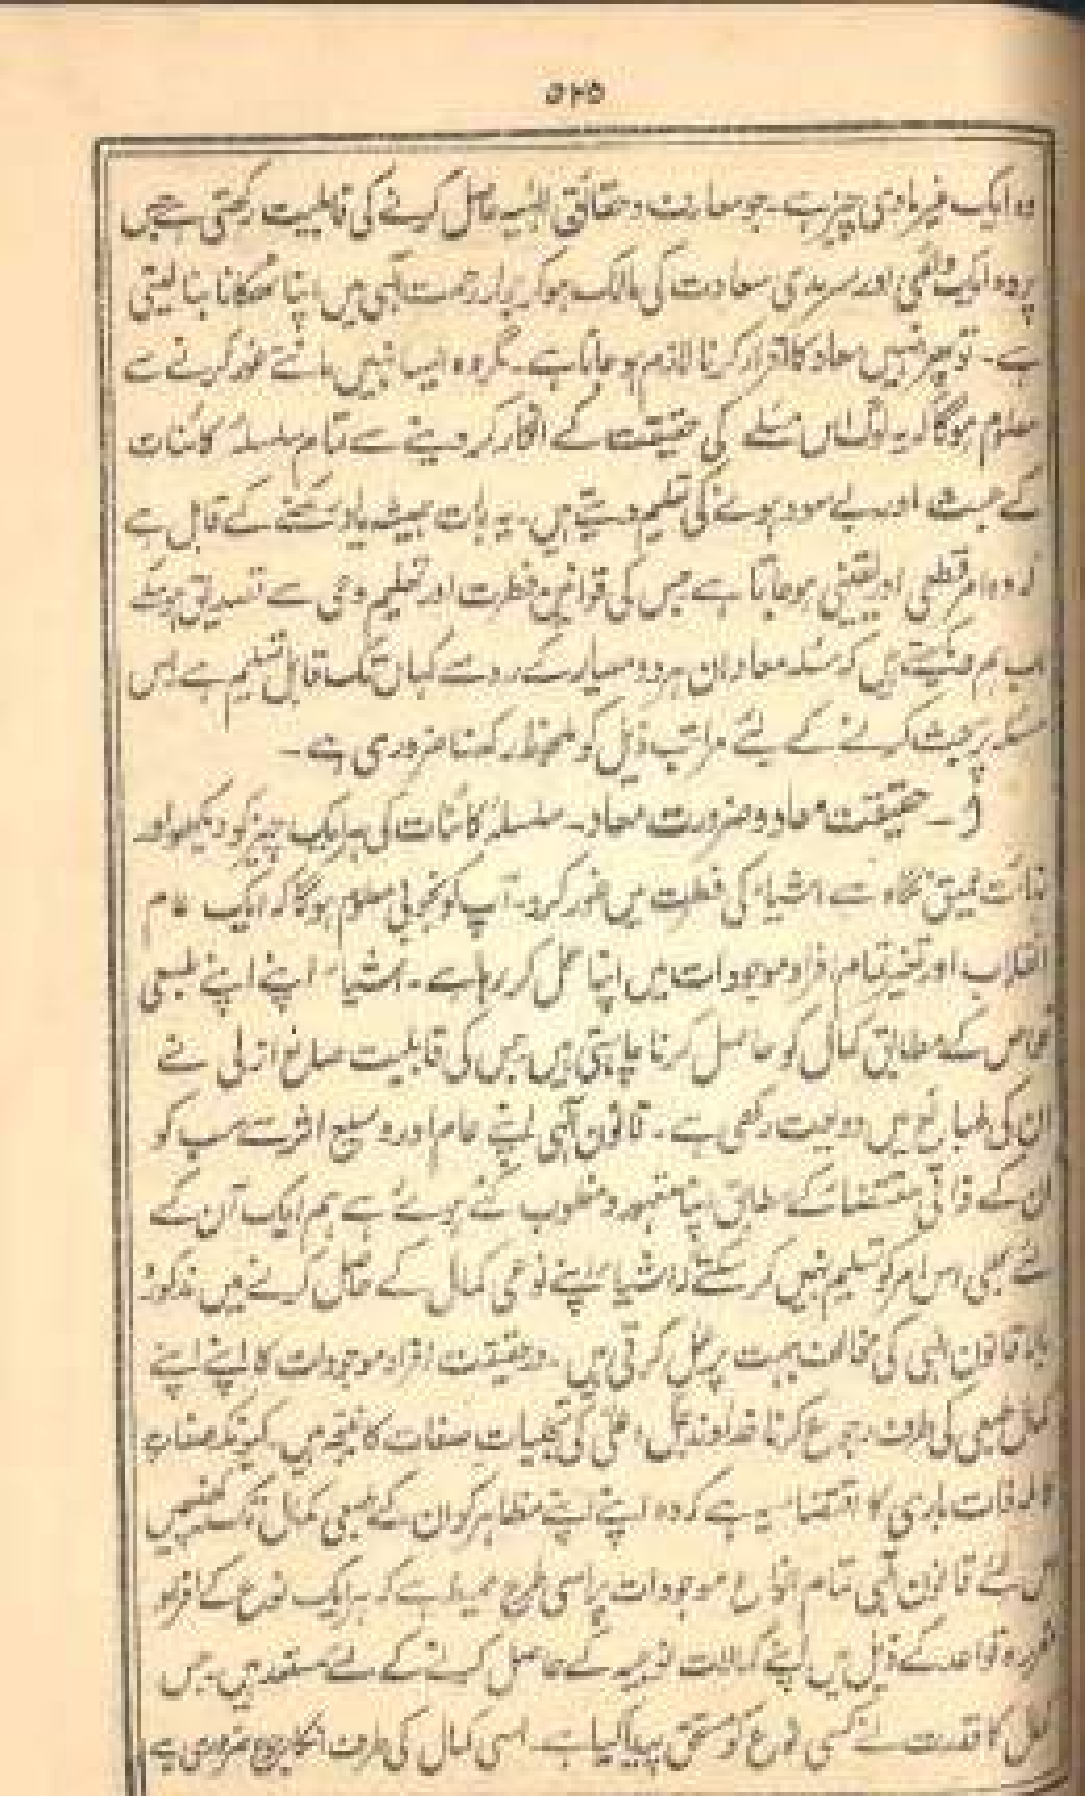 ۵۲۵
وہ ایک غیر مادی چیز ہے۔ جو معارف و حقائق الٰہیہ حاصل کرنے کی قابلیت رکھتی ہے جس
پر وہ ایک دائمی اور سرمدی سعادت کی مالک ہو کر جوار رحمت الٰہی میں اپنا ٹھکانا بنا لیتی
ہے۔ تو پھر انہیں معاد کا اقرار کرنا لازم ہو جاتا ہے۔ مگر وہ ایسا نہیں مانتے غور کرنے سے
معلوم ہوگا کہ یہ لوگ اس مسئلے کی حقیقت کے انکار کر دینے سے تمام سلسلۂ کائنات
کے عبث اور بے سود ہونے کی تعلیم دیتے ہیں۔ یہ بات ہمیشہ یاد رکھنے کے قابل ہے
کہ وہ امر قطعی اور یقینی ہو جاتا ہے جس کی قوانین فطرت اور تعلیم وحی سے تصدیق ہو سکے
اب ہم دیکھتے ہیں کہ مسئلہ معاد ان ہر دو معیار کے رو سے کہاں تک قابل تسلیم ہے اس
مسئلہ پر بحث کرنے کے لئے مراتب ذیل کو ملحوظ رکھنا ضروری ہے۔
۔ حقیقت معاد و ضرورت معاد۔ سلسلۂ کائنات کی ہر ایک چیز کو دیکھو اور
غائت عمیق نگاہ سے اشیاء کی فطرت میں غور کرو۔ آپ کو بخوبی معلوم ہوگا کہ ایک عام
انقلاب اور تغیر تمام افراد موجودات میں اپنا عمل کر رہا ہے۔ اشیاء اپنے اپنے طبعی
خواص کے مطابق کمال کو حاصل کرنا چاہتی ہیں جس کی قابلیت صانع ازلی نے
ان کی طبائع میں ودیعت رکھی ہے۔ قانون الٰہی اپنے عام اور وسیع اثر سے سب کو
ان کے ذاتی مقتضات کے مطابق اپنا مقہور و مغلوب کئے ہوئے ہے ہم ایک آن کے
لئے بھی اس امر کو تسلیم نہیں کر سکتے کہ اشیاء اپنے نوعی کمال کے حاصل کرنے میں مذکورہ
بالا قانون الٰہی کی مخالف جہت پر عمل کرتی ہیں۔ درحقیقت افراد موجودات کا اپنے اپنے
کمال طبعی کی طرف رجوع کرنا خداوند جل و علی کی تجلیات صفات کا نتیجہ ہیں۔ کیونکہ صفات
ذات باری کا اقتضا یہ ہے کہ وہ اپنے اپنے مظاہر کو ان کے طبعی کمال تک کھینچیں
اس لئے قانون الٰہی تمام انواع موجودات پر اسی طرح محیط ہے کہ ہر ایک نوع کے افراد
مقررہ قواعد کے ذیل میں اپنے کمالات نوعیہ کے حاصل کرنے کے لئے مستعد ہیں۔ جس
کمال کا قدرت نے کسی نوع کو مستحق پیدا کیا ہے۔ اسی کمال کی طرف ضروری ہے